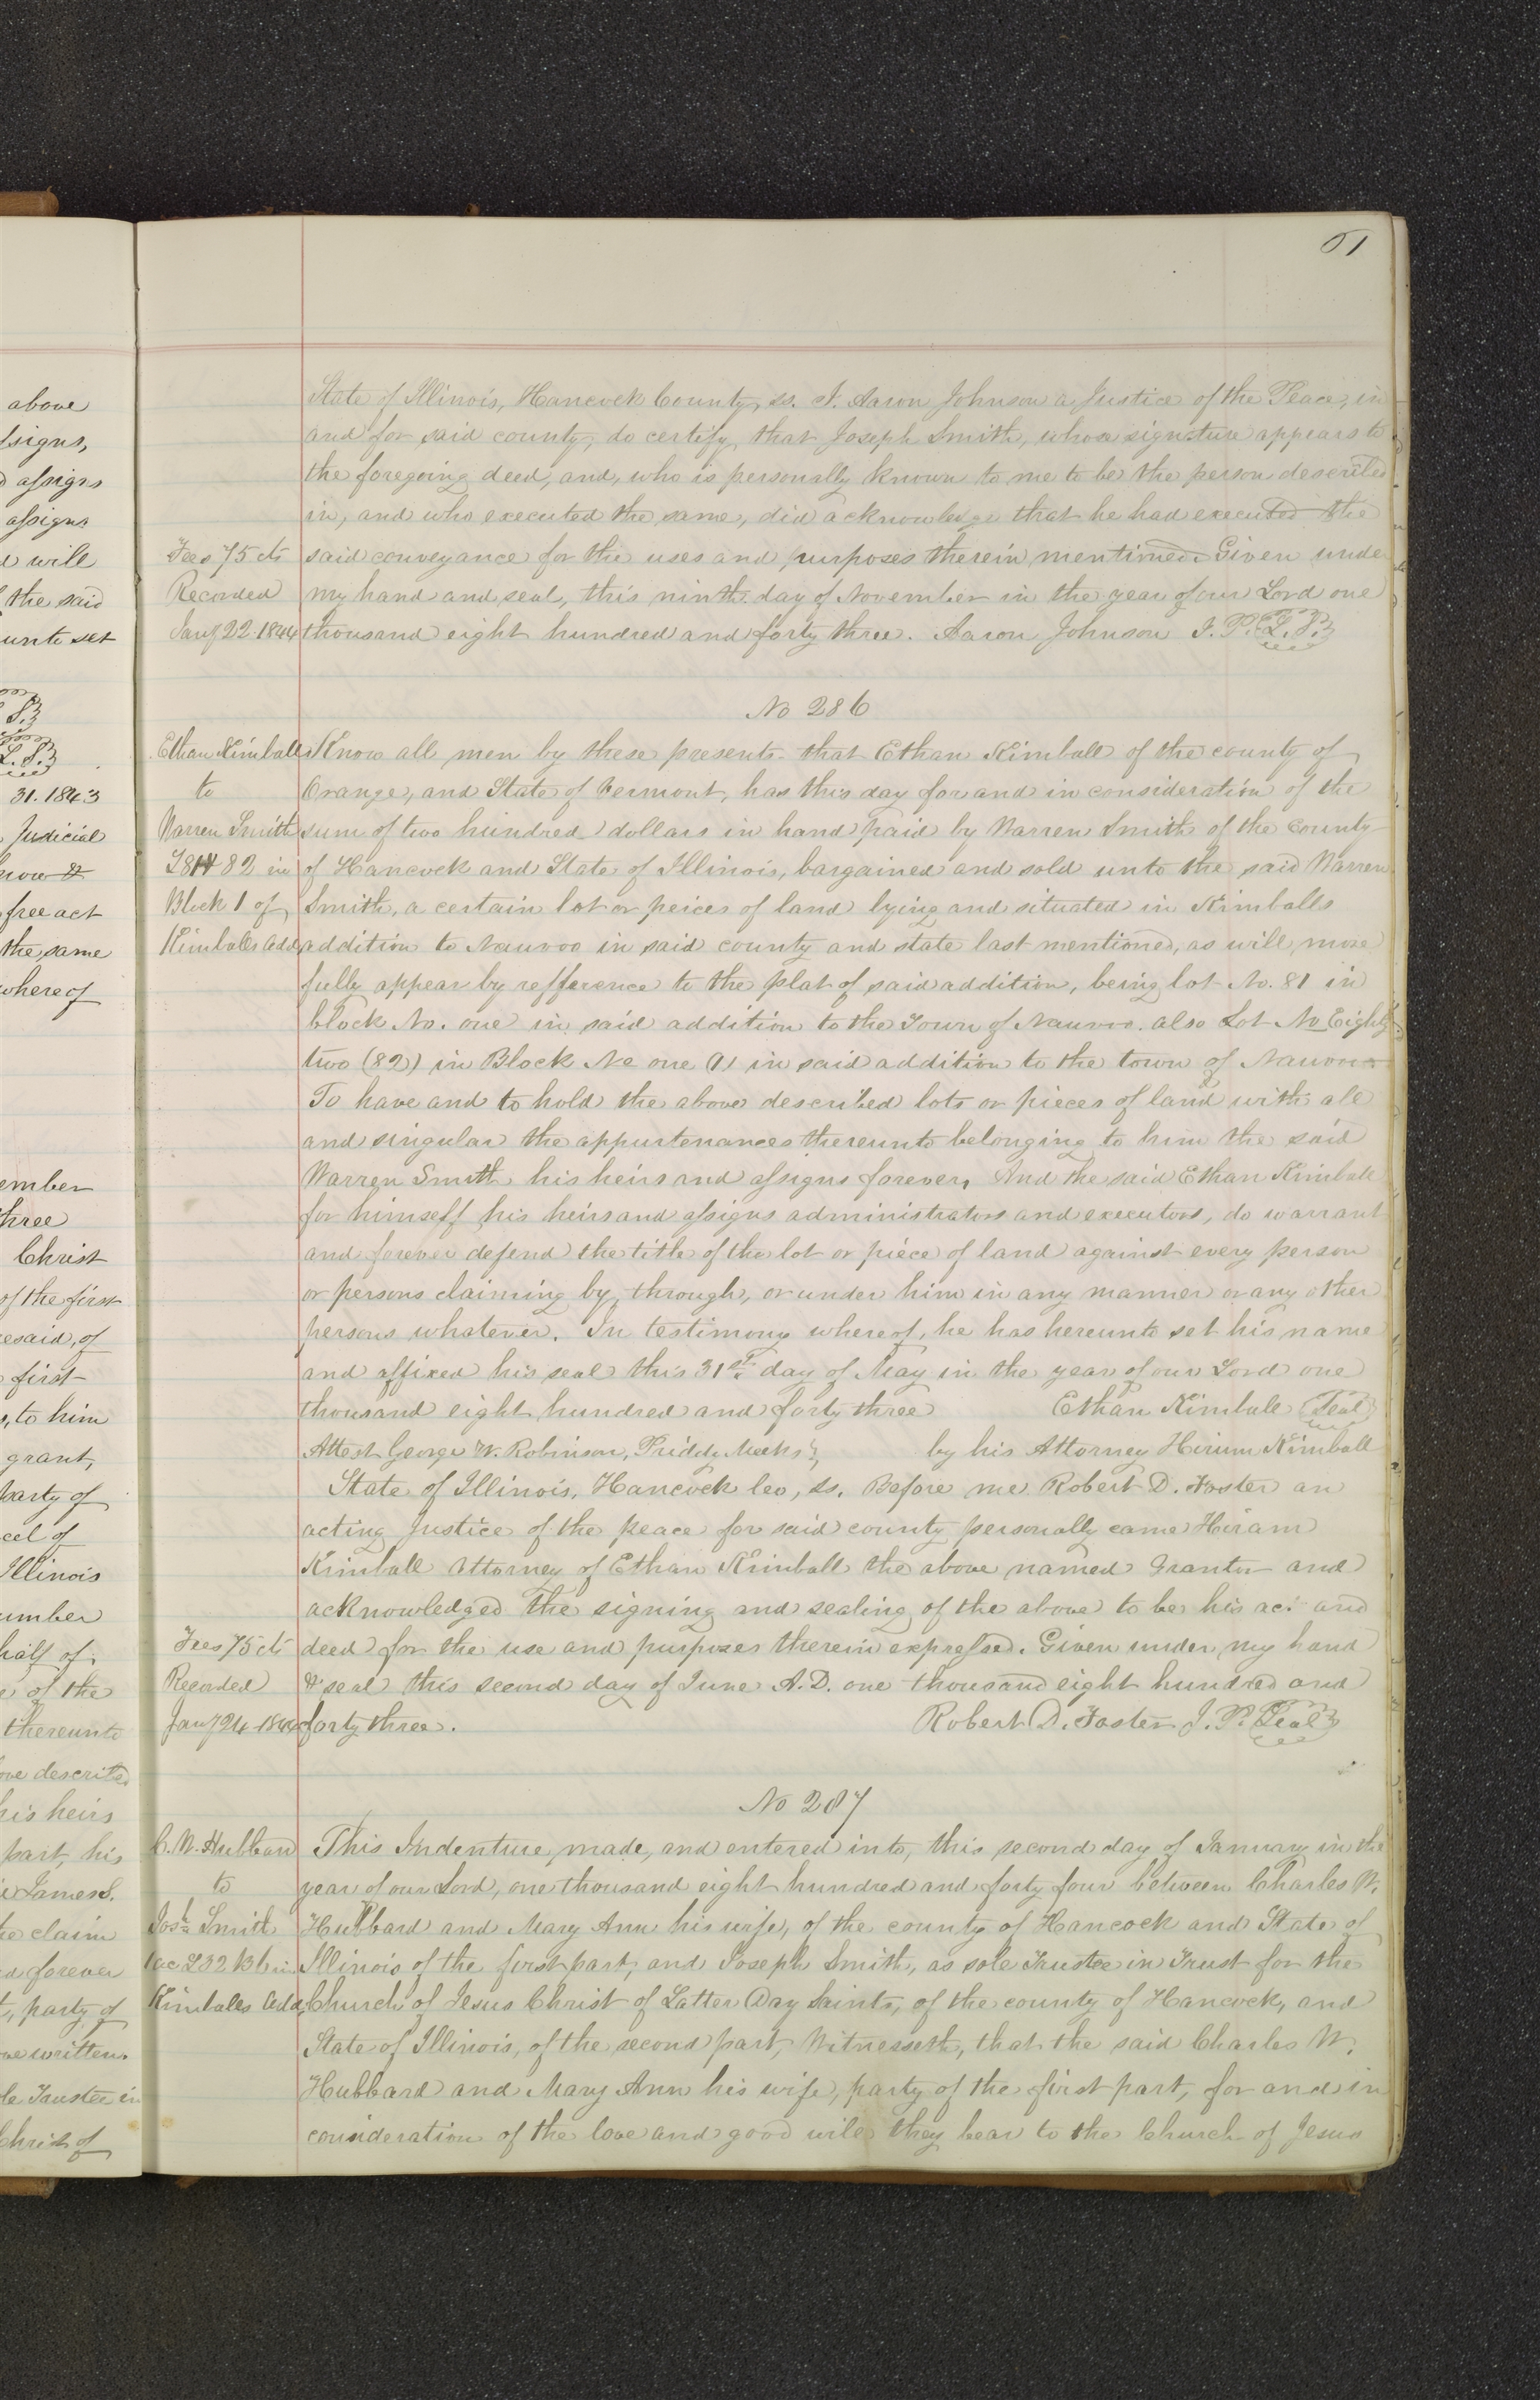 above
assigns,
assigns
assigns
will
the said
unto set
L. S.
31. 1843
Judicial
now &
free act
the same
whereof
ember
three
Christ
of the first
esaid, of
first
, to him
grant,
party of
cel of
Illinois
umber
half of
e of the
thereunto
ove described
his heirs
part, his
James S.
he claim
d forever
t, party of
ove written.
le Trustee in
Christ of
51
State of Illinois, Hancock County, ss. I. Aaron Johnson a Justice of the Peace, in
and for said county, do certify, that Joseph Smith, whose signature appears to
the foregoing deed, and, who is personally known to me to be the person described
in, and who executed the same, did acknowledge that he had executed the
Fees 75 cts said conveyance for the uses and purposes therein mentioned. Given under
Recorded my hand and seal, this ninth day of November in the year of our Lord one
Jany 22. 1844 thousand eight hundred and forty three. Aaron Johnson J. P. L. S.
No 286
Ethan Kimball Know all men by these presents that Ethan Kimball of the county of
to Orange, and State of Vermont, has this day for and in consideration of the
Warren Smith sum of two hundred dollars in hand paid by Warren Smith of the County
L 81 & 82 in of Hancock and State of Illinois, bargained and sold unto the said Warren
Block 1 of Smith, a certain lot or peices of land lying and situated in Kimballs
Kimballs Add. addition to Nauvoo in said county and state last mentioned, as will more
fully appear by refference to the plat of said addition, being lot No. 81 in
block No. one in said addition to the Town of Nauvoo. also Lot No Eighty
two (82) in Block No one (1) in said addition to the town of Nauvoo
To have and to hold the above described lots or pieces of land with all
and singular the appurtenances thereunto belonging to him the said
Warren Smith his heirs and assigns forever, And the said Ethan Kimball
for himself his heirs and assigns administrators and executors, do warrant
and forever defend the title of the lot or piece of land against every person
or persons claiming by, through, or under him in any manner or any other
persons whatever. In testimony whereof, he has hereunto set his name
and affixed his seal this 31st day of May in the year of our Lord one
thousand eight hundred and forty three Ethan Kimball Seal
Attest George W. Robinson, Priddy Meeks by his Attorney Hirum Kimball
State of Illinois, Hancock Co, ss. Before me Robert D. Foster an
acting Justice of the peace for said county personally came Hiram
Kimball Attorney of Ethan Kimball the above named Grantor and
acknowledged the signing and sealing of the above to be his act and
Fees 75 cts deed for the use and purposes therein expressed. Given under my hand
Recorded & seal this second day of June A.D. one thousand eight hundred and
Jany 24 1844 forty three. Robert D. Foster J. P. Seal
No 287
C. W. Hubbard This Indenture, made, and entered into, this second day of January in the
to year of our Lord, one thousand eight hundred and forty four between Charles W.
Josh Smith Hubbard and Mary Ann his wife, of the county of Hancock and State of
L 32 B 6 in Illinois of the first part, and Joseph Smith, as sole Trustee in Trust for the
Kimballs Add. Church of Jesus Christ of Latter Day Saints, of the county of Hancock, and
State of Illinois, of the second part, Witnesseth, that the said Charles W.
Hubbard and Mary Ann his wife, party of the first part, for and in
consideration of the love and good will they bear to the Church of Jesus